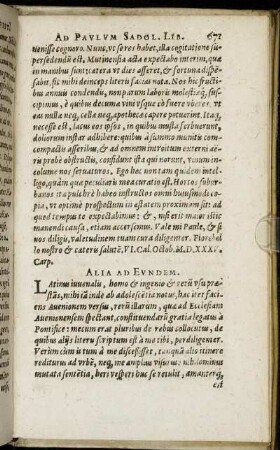 AD PAVLVM SADOL. LIB. 671
uenisse cognouero. Nunc, ut se res habet, illa cogitatione su-
persedendū est. Mutinensia acta expectabo interim, quæ
in manibus sunt: cætera ut dies afferet, & fortuna dispen-
sabit, sic mihi deinceps literis facias nota. Nos his fructi-
bus annuis condendis, nonparum laboris molestiæq́; su-
scipimus, è quibus decuma uini usque eò fuere vberes, ut
eas nulla neq; cella, neq; apothecæ capere potuerint. Itaq́;
necesse est, lacus eos ipsos, in quibus musta feruuerunt,
doliorum instar adhibere quibus à summo munitis com-
pactis asseribus, & ad omnem introitum externi aë-
ris probe obstructis, confidunt ista qui norunt, uinum in-
colume nos seruaturos. Ego hæc non tam quidem intel-
ligo, quàm quæ peculiaris mea cura est. Hortos subur-
banos ita pulchrè habeo instructos omni huiuscemodi co-
pia, ut optimè prospectum iri arbitrer
quod tempus te expectabimus: & , nisi erit maior illic
manendi causa, etiam accersemus. Vale mi Paule, & si
uos diligis, valetudinem tuam cura diligenter. Florebel-
lo nostro & cæteris salutē, VI. Cal. Octob. M.D.XXXV.
Carp.
ALIA AD EVNDEM.
LAtinus iuuenalis, homo & ingenio & rerū usu præ-
stās, mihi iā inde ab adolescētia notus, hac iter faci-
ens Auenionem versus, rerū certarum, quæ ad Ecclesiam
Auenionensem spectant, constituendarū gratia legatus à
Pontifice: mecum erat pluribus de rebus collocutus, de
quibus aliis literis scriptum est à me tibi, perdiligenter.
Verùm cùm is tum à me discessisset, tanquā alio itinere
rediturus ad vrbē, neq; me amplius visurus in vrbano
mutata sententia, hers vesperi huc se retulit, amanterq́;
est